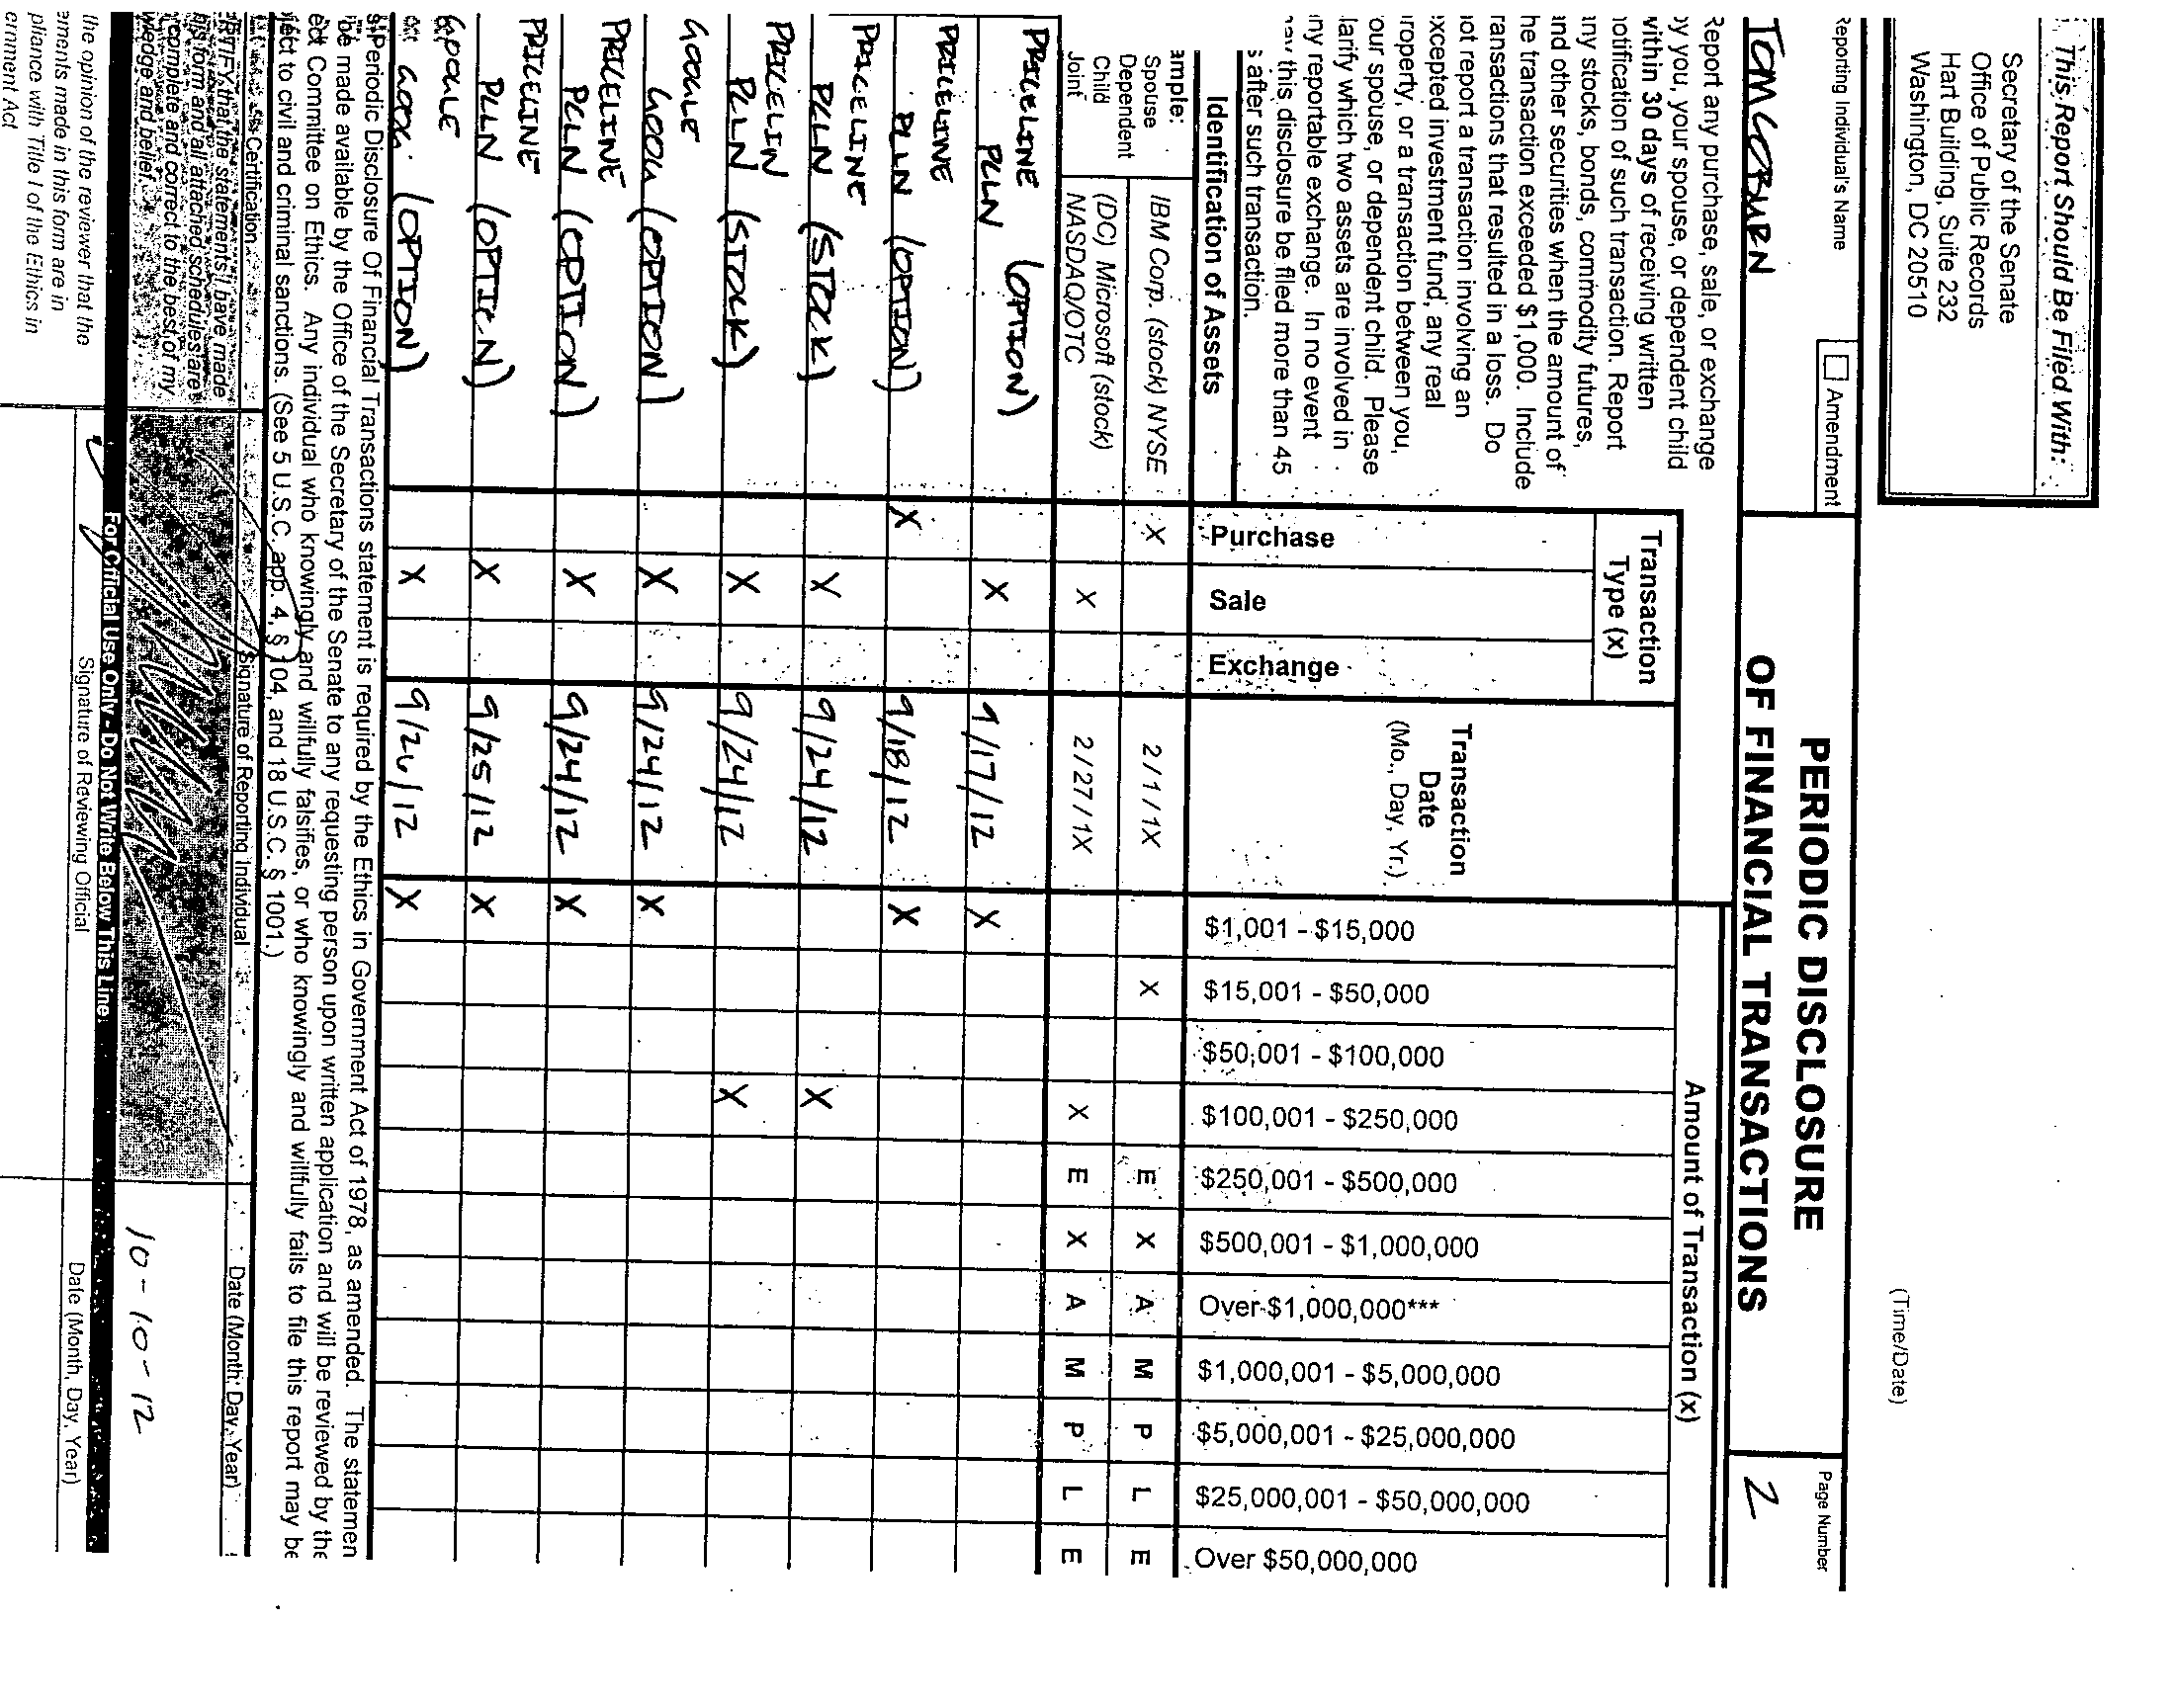 This Report Should Be Filed With:
Secretary of the Senate
Office of Public Records
Hart Building, Suite 232
Washington, DC 20510
(Time/Date)
Reporting Individual's Name
TOM COBURN
Amendment
PERIODIC DISCLOSURE
OF FINANCIAL TRANSACTIONS
Page Number
2
Report any purchase, sale, or exchange
by you, your spouse, or dependent child
any stocks, bonds, commodity futures,
within 30 days of receiving written
notification of such transaction. Report
and other securities when the amount of
the transaction exceeded $1,000. Include
transactions that resulted in a loss. Do
not report a transaction involving an
excepted investment fund, any real
property, or a transaction between you,
your spouse, or dependent child. Please
clarify which two assets are involved in
any reportable exchange. In no event
may this disclosure be filed more than 45
s after such transaction.
Transaction
Type (x)
Transaction
Date
(Mo., Day, Yr.)
Amount of Transaction (x)
Identification of Assets
Purchase
Sale
Exchange
$1,001 - $15,000
$15,001 - $50,000
$50,001 - $100,000
$100,001 - $250,000
$250,001 - $500,000
$500,001 - $1,000,000
Over $1,000,000***
$1,000,001 - $5,000,000
$5,000,001 - $25,000,000
$25,000,001 - $50,000,000
Over $50,000,000
ample:
Spouse
Dependent
Child
Joint
IBM Corp. (stock) NYSE X 2/1/1X X E X A M P L E
(DC) Microsoft (stock)
NASDAQ/OTC X 2/27/1X X E X A M P L E
PRICELINE
PCLN (OPTION) X 9/17/12 X
PRICELINE
PCLN (OPTION) X 9/18/12 X
PRICELINE
PCLN (STOCK) X 9/24/12 X
PRICELIN
PCLN (STOCK) X 9/24/12 X
GOOGLE
GOOG (OPTION) X 9/24/12 X
PRICELINE
PCLN (OPTION) X 9/24/12 X
PRICELINE
PCLN (OPTION) X 9/25/12 X
GOOGLE
GOOG (OPTION) X 9/26/12 X
s Periodic Disclosure Of Financial Transactions statement is required by the Ethics in Government Act of 1978, as amended. The statemen
be made available by the Office of the Secretary of the Senate to any requesting person upon written application and will be reviewed by the
ect Committee on Ethics. Any individual who knowingly and willfully falsifies, or who knowingly and willfully fails to file this report may be
ject to civil and criminal sanctions. (See 5 U.S.C. app. 4, § 104, and 18 U.S.C. § 1001.)
Certification
Signature of Reporting Individual
Date (Month, Day, Year)
CERTIFY that the statements I have made
this form and all attached schedules are
complete and correct to the best of my
wledge and belief.
10-10-12
For Official Use Only - Do Not Write Below This Line
the opinion of the reviewer that the
ements made in this form are in
pliance with Title I of the Ethics in
ernment Act
Signature of Reviewing Official
Date (Month, Day, Year)